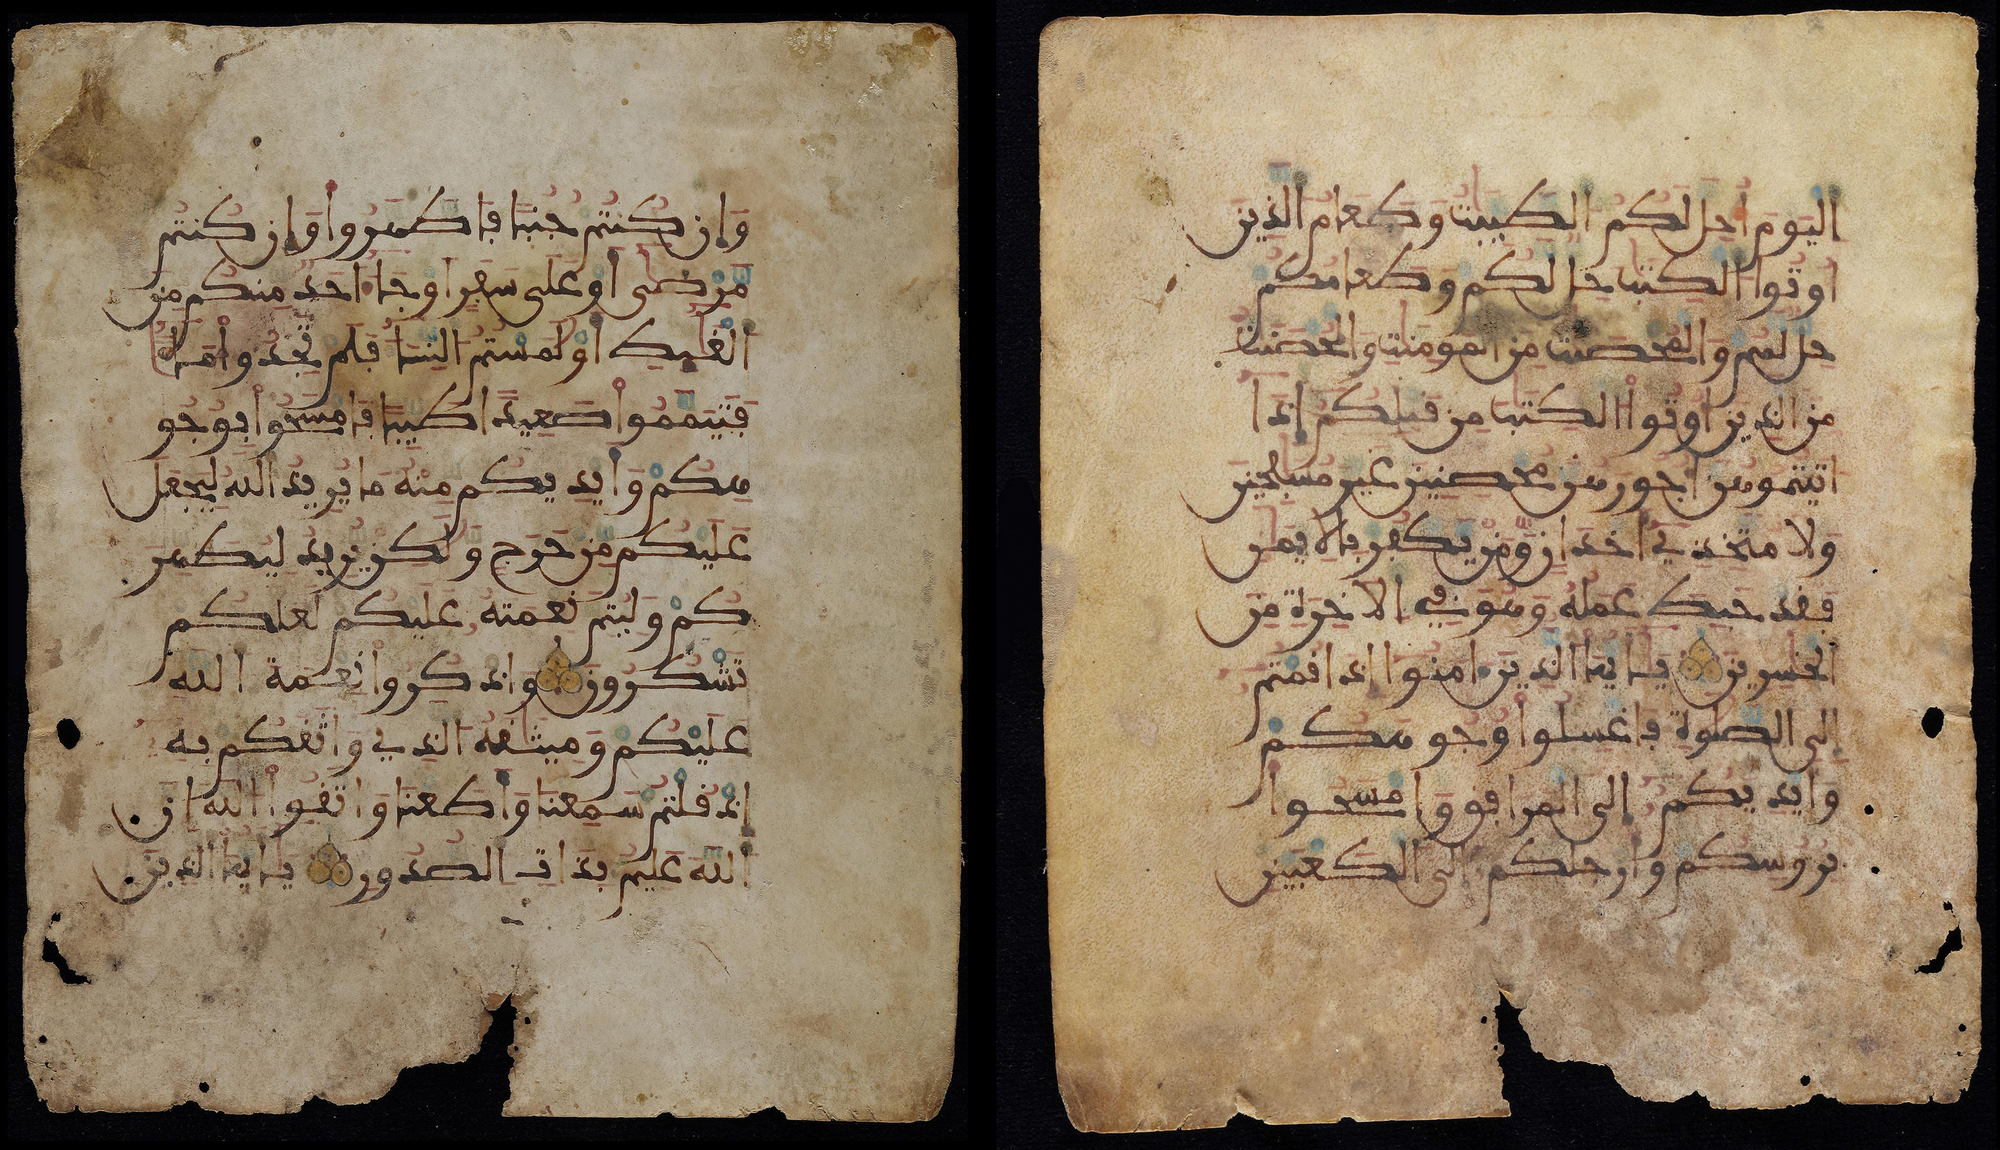 اليوم احل لكم الطيبت وطعام الذين
اوتوا الكتب حل لكم وطعامكم
حل لهم والمحصنت من المومنت والمحصنت
من الذين اوتوا الكتب من قبلكم اذا
اتيتموهن اجورهن محصنين غير مسفحين
ولا متخذي اخدان ومن يكفر بالايمن
فقد حبط عمله وهو في الاخرة من
الخسرين يايها الذين امنوا اذا قمتم
الى الصلوة فاغسلوا وجوهكم
وايديكم الى المرافق وامسحوا
بروسكم وارجلكم الى الكعبين
وَإن كُنتُم جُنُبا فَاطهروا وَإن كنتُم
مَرْضى أوْ عَلَى سَفَر اوجا احَد منكم مِن
الغايط أوْ لمَسْتُم النِسا فَلَم تَجِدُوا مَا
فَتَيَمموا صَعِيدا طَيِبا فَامسَحُوا بِوُجُو
هكُمْ وَأيديكم مِنْهُ مَا يُرِيد اللهُ لِيَجْعَلَ
عَلَيْكُم مِن حَرَجٍ وَلكن يريد ليطهر
كُمْ وَليتم نعمته عَلَيْكُم لَعَلكم
تَشْكُرُونَ واذكروا نِعمة الله
عَلَيْكُمْ وَميثقهُ الذي وَاثَقَكُم به
اذ قلتم سَمِعنَا وَأطَعنَا وَاتقوا الله إن
اللهَ عليم بذات الصدُور يايها الذين